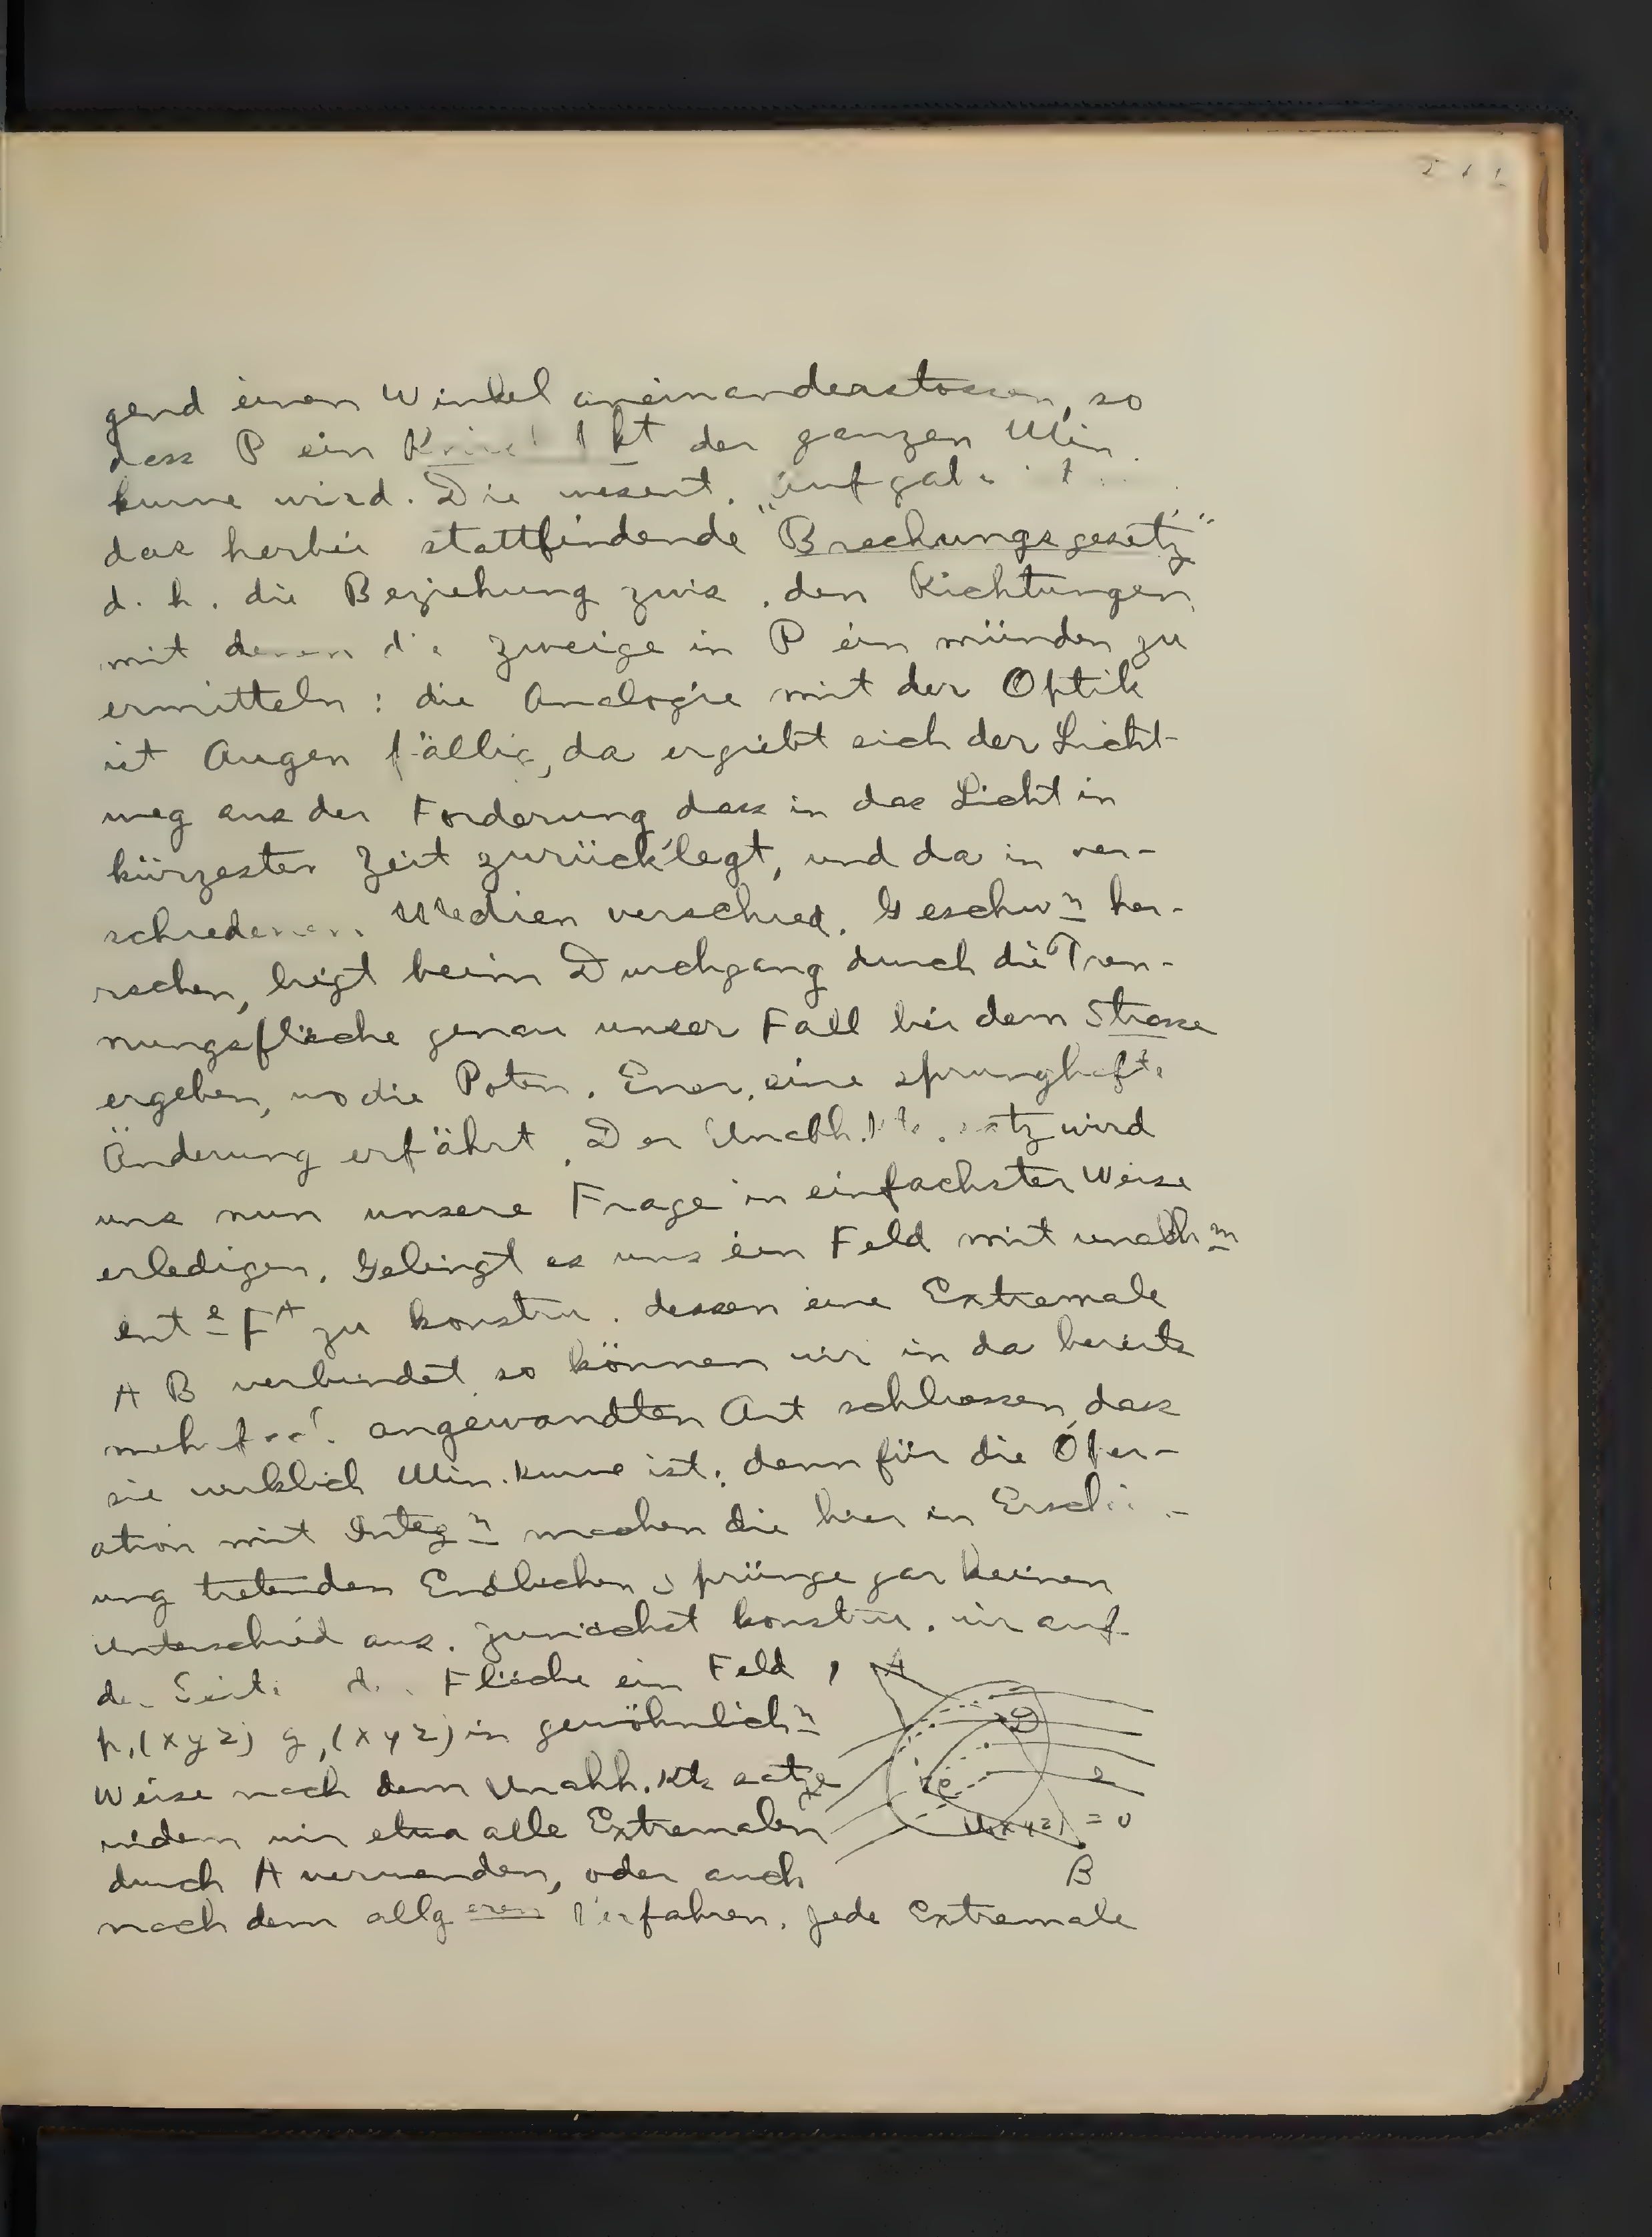 gend einen Winkel aneinanderstossen, so
dass P ein kt der ganzen Min.
kurve wird. Die wesent. Aufgabe
das herbei stattfindende "Brechungsgesetz"
d. h. die Beziehung zwis. den Richtungen
mit denen die Zweige in P ein münden zu
ermitteln: die Analogie mit der Optik
ist Augen fällig, da ergiebt sich der Licht-
weg aus der Forderung dass in das Licht in
kürzester Zeit zurücklegt, und da in ver-
schiedenen Medien verschied. Geschw n her-
rschen, liegt beim Durchgang durch die Tren-
nungsfläche genau unser Fall bei dem Strasse
ergeben, wo die Poten. Ener. eine sprunghafte
Änderung erfährt. Der Unabh. satz wird
uns nun unsere Frage in einfachster Weise
erledigen. Gelingt es uns ein Feld mit unabh m
int e F A zu konstru. dessen eine Extremale
A B verbindet so können wir in da bereits
angewandten Art schliessen, dass
sie wirklich Min. kurve ist; denn für die Oper-
ation mit Integ n machen die hier in Ersch -
ung tretenden Endlichen Sprünge gar keinen
Unterschied aus. Zunächst konstru. wir auf
Fläche ein Feld,
p,(xyz) q,(xyz) in gewöhnlich n
Weise nach dem Unabh.kts satze
indem wir etwa alle Extremalen
durch A verwenden, oder auch
nach dem allg eren Verfahren. Jede Extremale
A
D
C
e
U(xyz) = 0
B